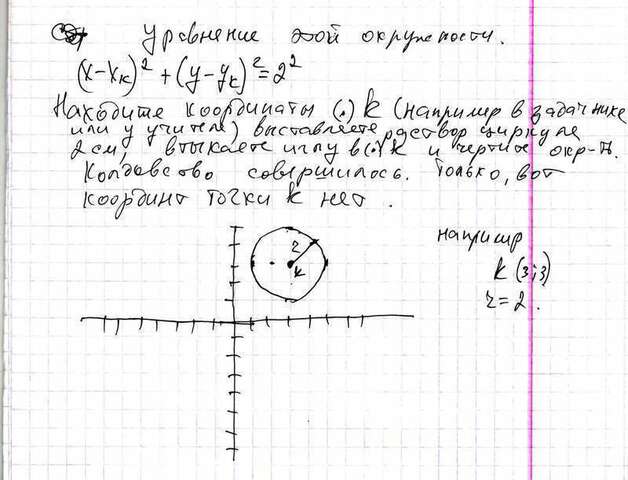 уравнение этой окружности.
(x-xк)² + (y-yк)² = 2²
Находите координаты (.) k (например в задачнике
или у учителя) выставляете раствор циркуля
2 см, втыкаете иглу в (.) k и чертите окр-ть.
Колдовство совершилось. Только, вот
координт точки k нет.
например
k (3;3)
r = 2.
r
k